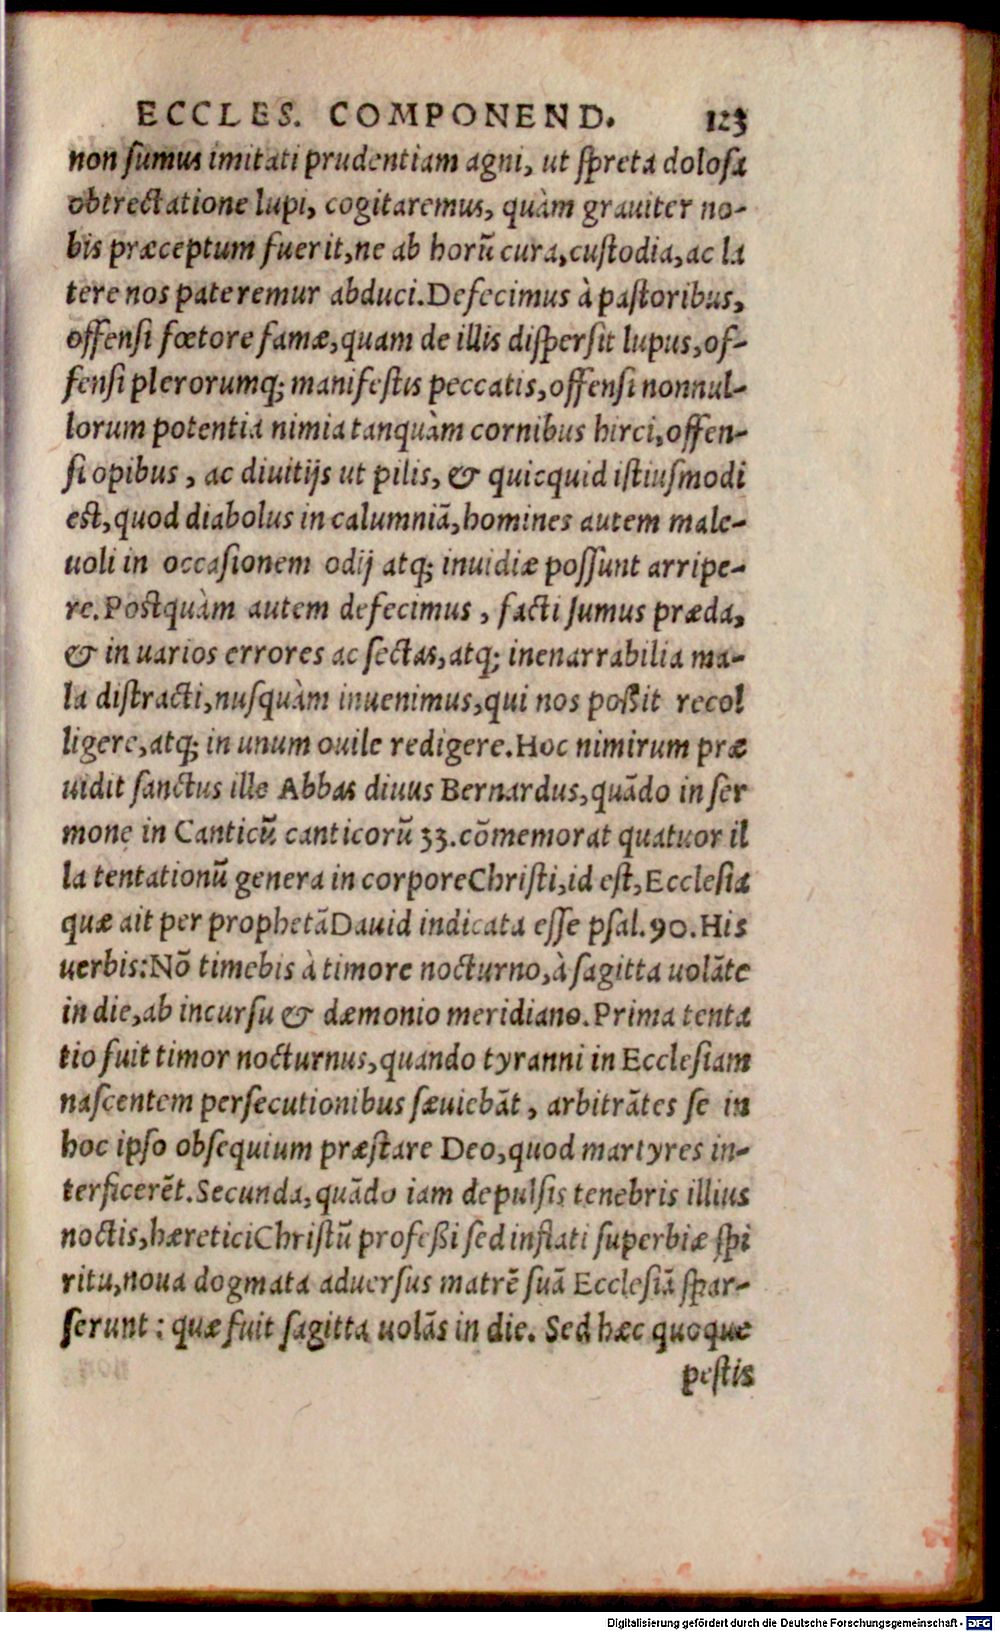 ECCLES. COMPONEND. 123
non ſumus imitati prudentiam agni, ut ſpreta doloſa
obtrectatione lupi, cogitaremus, quàm grauiter no-
bis præceptum fuerit, ne ab horū cura, cuſtodia, ac la
tere nos pateremur abduci. Defecimus à paſtoribus,
offenſi fœtore famæ, quam de illis diſperſit lupus, of-
fenſi plerorumq; manifeſtis peccatis, offenſi nonnul-
lorum potentia nimia tanquàm cornibus hirci, offen-
ſi opibus, ac diuitijs ut pilis, & quicquid iſtiuſmodi
eſt, quod diabolus in calumniā, homines autem male-
uoli in occaſionem odij atq; inuidiæ poſſunt arripe-
re. Poſtquàm autem defecimus, facti ſumus præda,
& in uarios errores ac ſectas, atq; inenarrabilia ma-
la diſtracti, nuſquàm inuenimus, qui nos poßit recol
ligere, atq; in unum ouile redigere. Hoc nimirum præ
uidit ſanctus ille Abbas diuus Bernardus, quādo in ſer
mone in Canticū canticorū 33. cōmemorat quatuor il
la tentationū genera in corpore Chriſti, id eſt, Eccleſiæ
quæ ait per prophetā Dauid indicata eſſe pſal. 90. His
uerbis: Nō timebis à timore nocturno, à ſagitta uolāte
in die, ab incurſu & dæmonio meridiano. Prima tenta
tio fuit timor nocturnus, quando tyranni in Eccleſiam
naſcentem perſecutionibus ſæuiebāt, arbitrātes ſe in
hoc ipſo obſequium præſtare Deo, quod martyres in-
terficerēt. Secunda, quādo iam depulſis tenebris illius
noctis, hæretici Chriſtū profeßi ſed inflati ſuperbiæ ſpi
ritu, noua dogmata aduerſus matrē ſuā Eccleſiā ſpar-
ſerunt: quæ fuit ſagitta uolās in die. Sed hæc quoque
peſtis
Digitalisierung gefördert durch die Deutsche Forschungsgemeinschaft - DFG